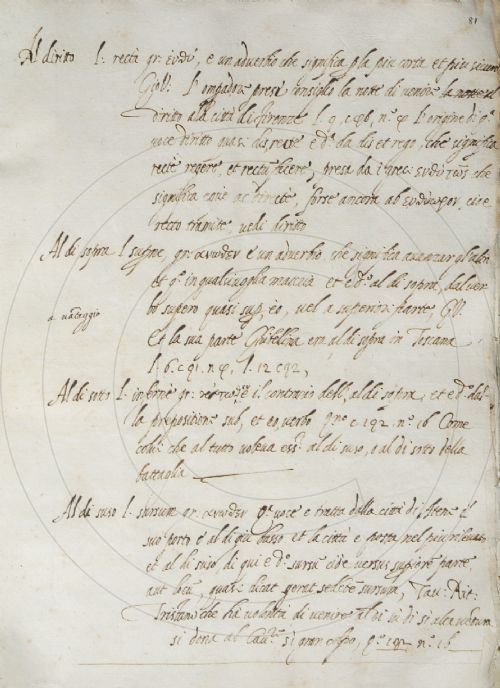 81
Al diritto l: rectà gr: ευθυ, è un adverbio che significa p la piu corta et piu sicura
Gio: V: l'ompadore prese consiglio la notte di venire
diritto alla città di firenze l. 9, c. 46, n.º L'origine di q.ª
voce diritto quasi disretto è d.ª da dis et rego, che significa
recte regere, et rectu facere, presa da i greci ευθυτως che
significa cioè ac directè, forse ancora ab ευθυωρον, cioè
recto tramite, vedi diritto
Al di sopra l. supme, gr: ανωθεν è un adverbio, che significa avanzar gl'altri
et q.º in qualunoglia maniera et è d.º al di sopra, dal ver
bo supero quasi sup, eo, vel a superiori parte, G. V:
a vantaggio
Et la sua parte Ghibellina era al di sopra in Toscana
l. 6. c. 91. n. l. 12 c 92,
Al di sotto l: inferne gr: è il contrario dell, al di sopra, et è d.º dal
la prepositione sub, et eo, verbo c. 192 n.º 16 Come
colui che al tutto voleva ess.e al di suso, o al di sotto della
battaglia
Al di suso l. sursum gr: ανωθεν q.ª voce è tratta dalla città di Atene il
suo porto è al di giu basso et la città è posta nel piu rilevato
et al di suso di qui è d.º sursu cioè versus supiore parte
aut locu, quasi dicat sedete sursum, Tav: Rit:
Tristano che ha volontà di venire al di su di si alta ventura
si dona al Cav.re si gran colpo, 192 n.º 16